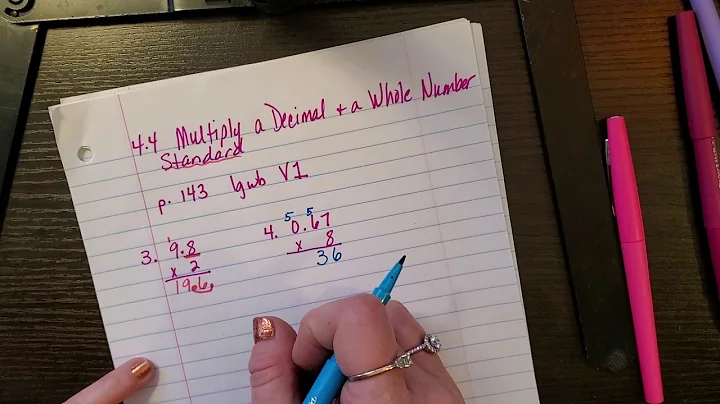 4.4 Multiply a Decimal + a Whole Number
Standard
p. 143 lgwb V1
1
3. 9.8
x 2
19.6
5 5
4. 0.67
x 8
36